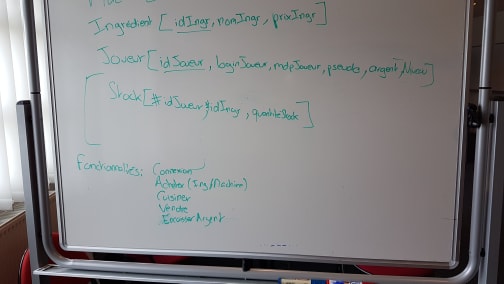 Ingrédient [idIngr, nomIngr, prixIngr]
Joueur [idJoueur, loginJoueur, mdpJoueur, pseudo, argent, Niveau]
Stock [# idJoueur, #idIngr, quantiteStock]
Fonctionnalités: Connexion
Acheter (Ing/Machine)
Cuisiner
Vendre
Encaisser Argent